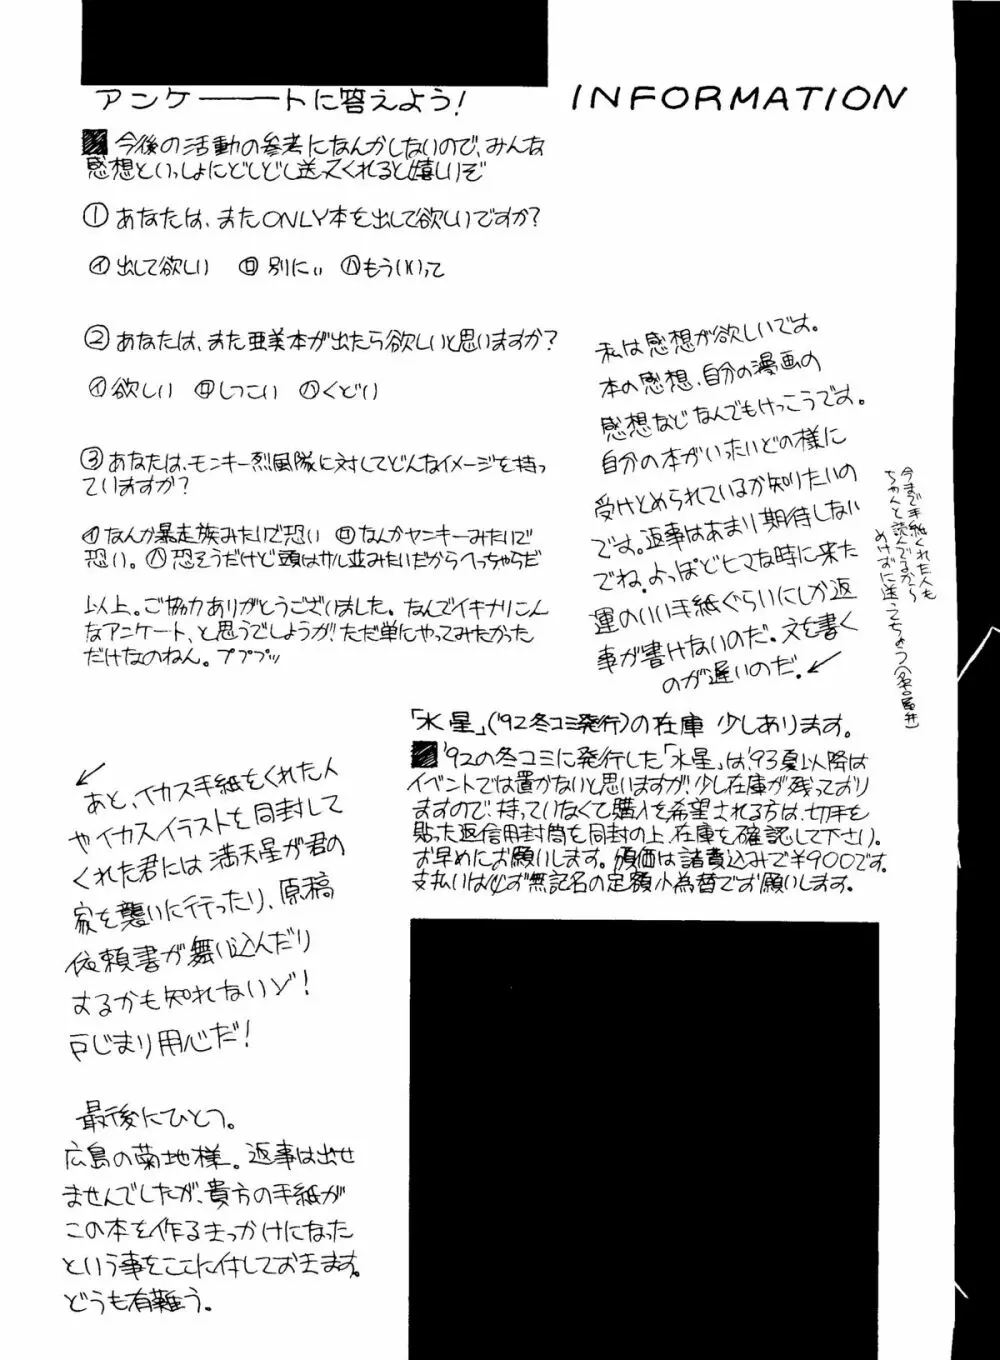 アンケートに答えよう!
INFORMATION
今後の活動の参考になんかしないので、みんな
感想といっしょにどしどし送ってくれると嬉しいぞ
①あなたは、またONLY本を出して欲しいですか?
㋑出して欲しい ㋺別にぃ ㋩もういいって
②あなたは、また亜美本が出たら欲しいと思いますか?
㋑欲しい ㋺しつこい ㋩くどい
③あなたは、モンキー烈風隊に対してどんなイメージを持っ
ていますか?
㋑なんか暴走族みたいで恐い ㋺なんかヤンキーみたいで
恐い。㋩恐そうだけど頭はサル並みたいだからへっちゃらだ
以上。ご協力ありがとうございました。なんでイキナリこん
なアンケート、と思うでしょうが、ただ単にやってみたかった
だけなのねん。プププッ
私は感想が欲しいです。
本の感想、自分の漫画の
感想などなんでもけっこうです。
自分の本がいったいどの様に
受けとめられているか知りたいの
です。返事はあまり期待しない
でね。よっぽどヒマな時に来た
運のいい手紙ぐらいにしか返
事が書けないのだ。文を書く
のが遅いのだ。
今まで手紙くれた人も
ちゃんと読んでるから
めげずに送ってちょう
「水星」('92冬コミ発行)の在庫 少しあります。
'92の冬コミに発行した「水星」は、'93夏以降は
イベントでは置かないと思いますが、少し在庫が残っており
ますので、持っていなくて購入を希望される方は、切手を
貼った返信用封筒を同封の上、在庫を確認して下さい。
お早めにお願いします。頒価は諸費込みで¥900です。
支払いは必ず無記名の定額小為替でお願いします。
あと、イカス手紙をくれた人
やイカスイラストを同封して
くれた君には満天星が君の
家を襲いに行ったり、原稿
依頼書が舞い込んだり
するかも知れないゾ!
戸じまり用心だ!
最後にひとつ。
広島の菊地様。返事は出せ
ませんでしたが、貴方の手紙が
この本を作るきっかけになった
という事をここに付しておきます。
どうも有難う。